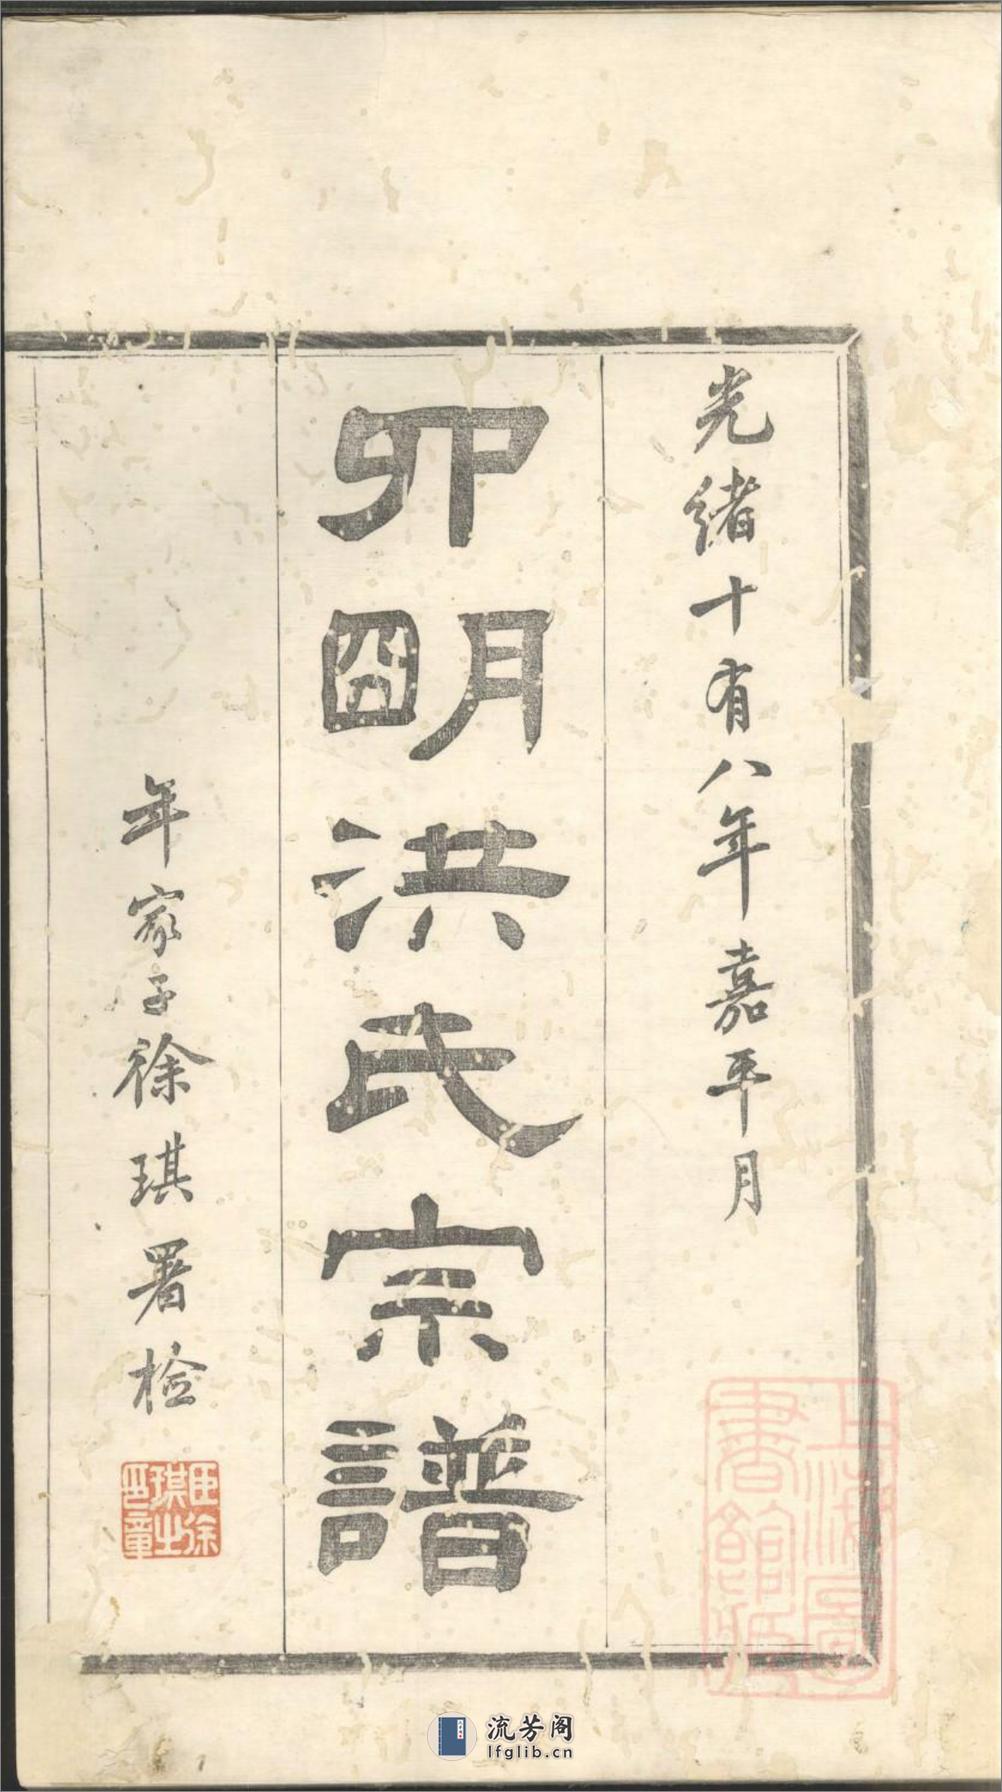 光緒十有八年嘉平月
卯朙洪氏宗譜
年家子徐琪署检
臣徐琪之印章
上海圖書館藏
流芳阁
lfglib.cn